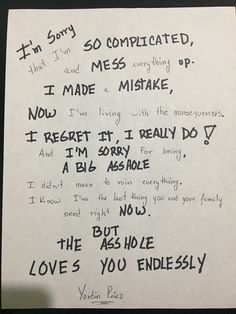 I'm Sorry
that I'm SO COMPLICATED,
and MESS everything UP.
I MADE a MISTAKE,
NOW I'm living with the consequensis.
I REGRET IT, I REALLY DO!
And I'M SORRY For being,
A BIG ASSHOLE
I didn't mean to ruin everything.
I Know I'm the last thing you and your family
need right NOW.
BUT
THE ASSHOLE
LOVES YOU ENDLESSLY